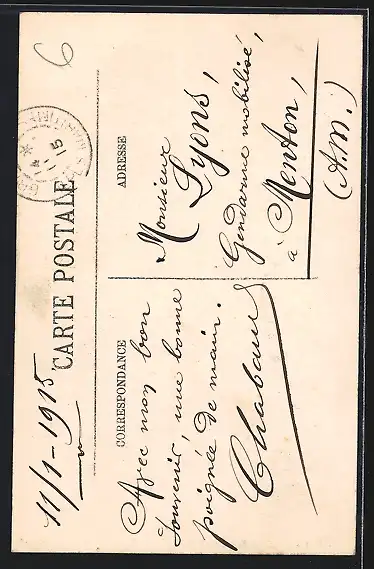 11/1-1915
CARTE POSTALE
6
CORRESPONDANCE
Avec mon bon
souvenir, une bonne
poignée de main.
Chabaud
ADRESSE
Monsieur
Lyons,
Gendarme mobilisé,
à Menton,
(A.M.)